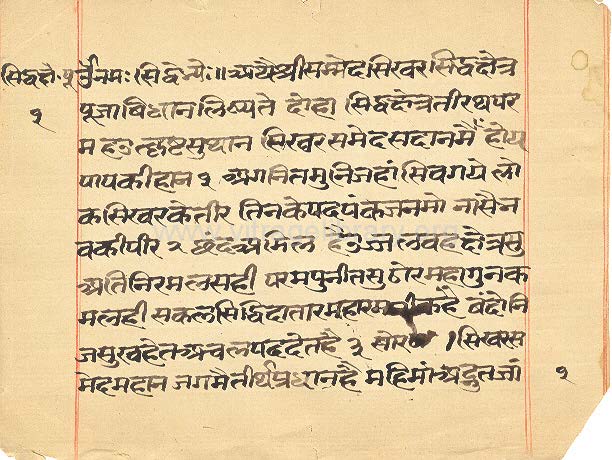 सिद्धक्षे॰पूर्जै नमः सिद्धेभ्यः॥ अथ श्री सम्मेदासिखर सिद्धक्षेत्र
१
पूजा बिधान लिष्यते दोहा सिद्धक्षेत्र तीरथ पर
म है उत्कृष्ट सुथान सिखर समेद सदा नमैं होय
पाप की हान १ अगनित मुनि जहां सिव गये लो
क सिखर के तीर तिनके पद पंकज नमो नासै न
व की पीर २ छंद अमिल है उज्जल वह क्षेत्र सु
अति निरमल सही परम पुनीत सु ठोर महा गुन क
मल ही सकल सिद्धि दातार महा रम नीक है बंदो नि
ज सुख हेत अचल पद देत है ३ सोर । सिखर स
मेद महान जग मै तीर्थ प्रधान है महिमां अद्भुत जां
१